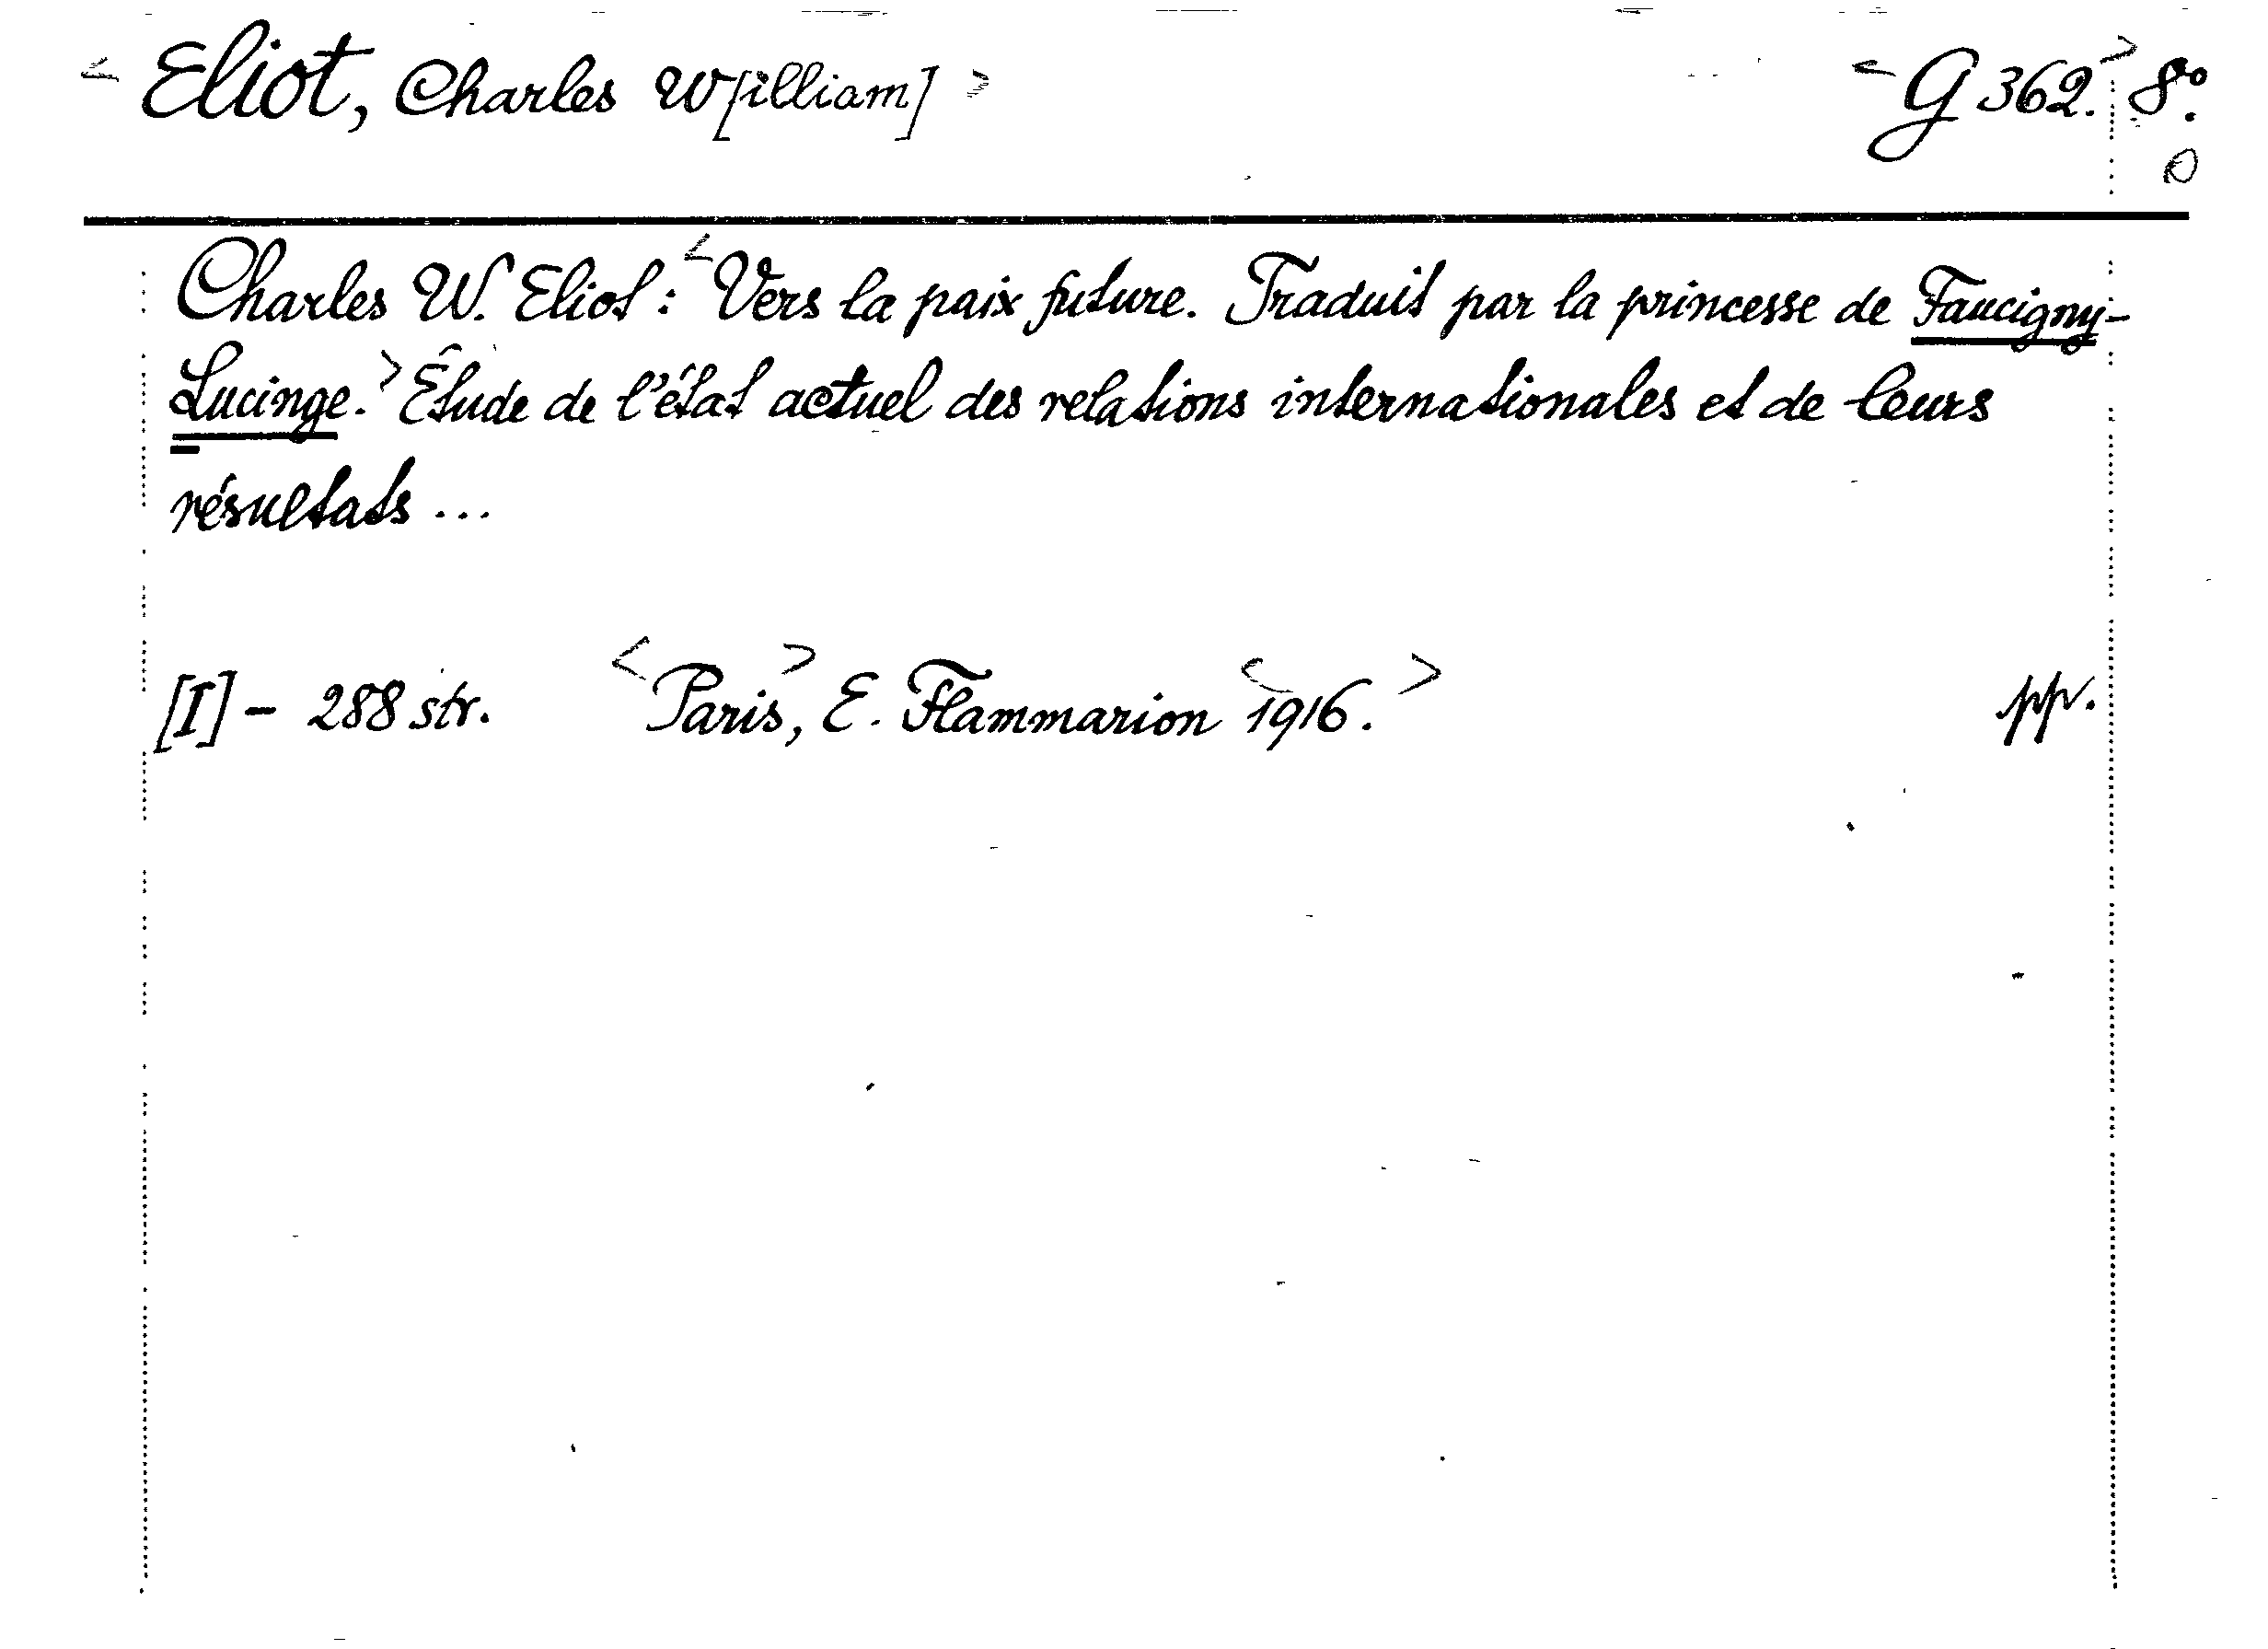 <Eliot, Charles W[illiam]> <G 362.> 8°.
Charles W. Eliot: <Vers la paix future. Traduit par la princesse de Faucigny-
Lucinge.> Étude de l'état actuel des relations internationales et de leurs
résultats ...
[I] - 288 str. <Paris>, E. Flammarion <1916.> pp.